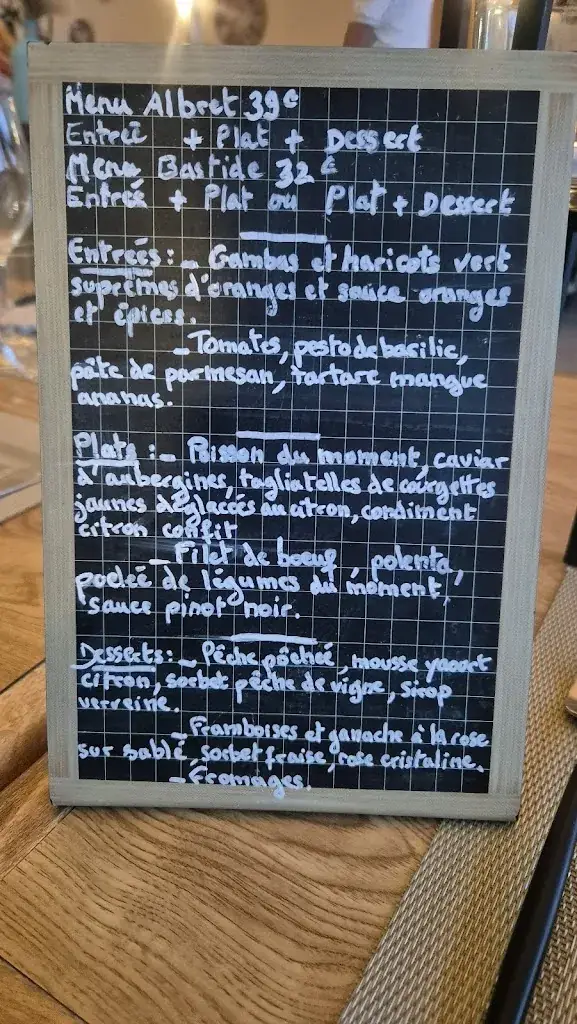 Menu Albret 39€
Entreé + Plat + Dessert
Menu Bastide 32€
Entreé + Plat ou Plat + Dessert
Entreés : - Gambas et haricots vert
suprêmes d'oranges et sauce oranges
et épices.
- Tomates, pesto de basilic,
pâte de parmesan, tartare mangue
ananas.
Plats : - Poisson du moment, caviar
d'aubergines, tagliatelles de courgettes
jaunes déglacées au citron, condiment
citron confit
- Filet de boeuf, polenta,
poeleé de légumes du moment,
sauce pinot noir.
Desserts : - Pêche pôcheé, mousse yaourt
citron, sorbet pêche de vigne, sirop
verveine.
- Framboises et ganache à la rose
sur sablé, sorbet fraise, rose cristaline.
- Fromages.